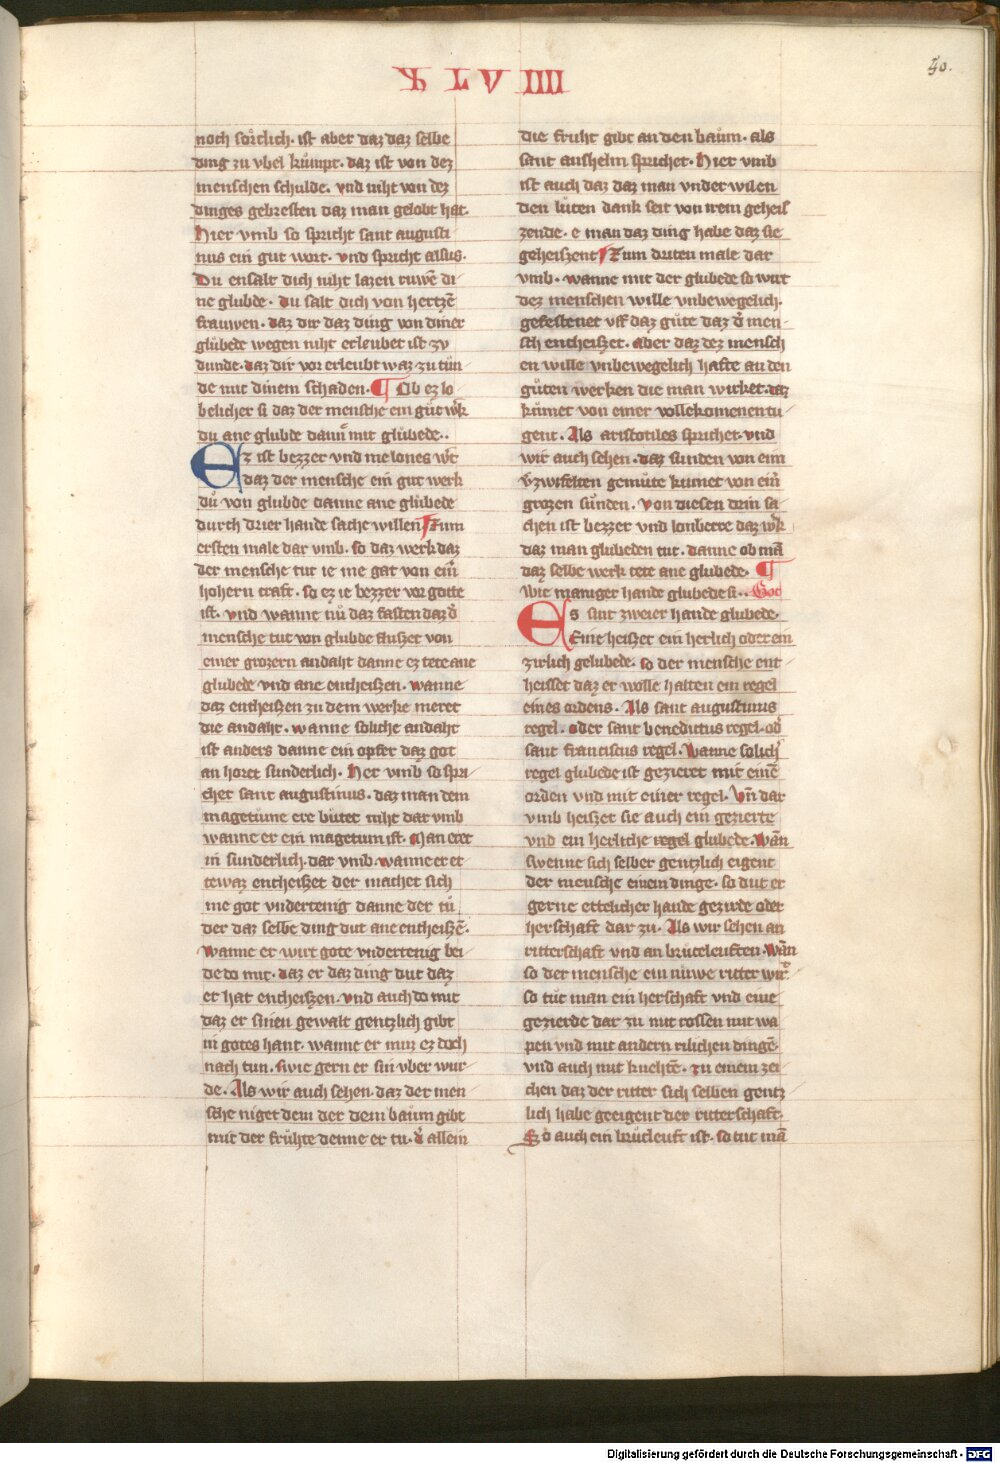 XLVIIII
40.
noch sorclich. ist aber daz daz selbe
ding zu vbel kůmpt. daz ist von dez
menschen schulde. vnd niht von dez
dinges gebresten daz man gelobt hat.
Hier vmb so spricht sant augusti
nus ein gut wort. vnd spricht alsus.
Du ensalt dich niht lazen ruwē di
ne glubde. du salt dich von hertzē
frauwen. daz dir daz ding von diner
glůbede wegen niht erleubet ist zv
dunde. daz dir vor erleubt waz zu tůn
de mit dinem schaden. ¶ Ob ez lo
belicher si daz der mensche ein gůt w͛k
du ane glubde dann͛ mit glůbede..
Ez ist bezzer vnd me lones w͛t
daz der mensche ein gut werk
dů von glubde danne ane glubede
durch drier hande sache willen ¶ Zum
ersten male dar vmb. so daz werk daz
der mensche tut ie me gat von eim̄
hohern craft. so ez ie bezzer vor gotte
ist. vnd wanne nů daz fasten daz d͛
mensche tut von glubde fluszet von
einer grozern andaht danne ez tete ane
glubede vnd ane entheiszen. wanne
daz entheiszen zu dem werke meret
die andaht. wanne soliche andaht
ist anders danne ein opfer daz got
an horet sunderlich. Her vmb so spri
chet sant augustinus. daz man dem
magetůme ere bůtet niht dar vmb
wanne er ein magetum ist. Man eret
in sunderlich. dar vmb. wanne er et
tewaz entheiszet der machet sich
me got vndertenig danne der tů
der daz selbe ding dut ane entheiszē.
wanne er wirt gote vndertenig bei
de do mit. daz er daz ding dut daz
er hat entheiszen. vnd auch do mit
daz er sinen gewalt gentzlich gibt
in gotes hant. wanne er muz ez doch
nach tun. swie gern er sin vber wur
de. Als wir auch sehen. daz der men
sche niget dem der dem baům gibt
mit der frůhte denne er tu. d͛ allein
die fruht gibt an den baům. als
sant anshelm sprichet. Hier vmb
ist auch daz daz man vnder wilen
den luten dank seit von irem geheis
zende. e man daz ding habe daz sie
geheiszent ¶ Zum driten male dar
vmb. wanne mit der glubede so wirt
dez menschen wille vnbewegelich.
gefestenet vff daz gůte daz d͛ men
sch entheiszet. aber daz dez mensch
en wille vnbewegelich hafte an den
gůten werken die man wirket. daz
kůmet von einer vollekomenen tu
gent. Als aristotiles sprichet. vnd
wir auch sehen. daz sunden von eim
v͛zwifelten gemůte kumet von eim̄
grozen sůnden. von diesen drin sa
chen ist bezzer vnd lonberre daz w͛k
daz man glubeden tut. danne ob mā
daz selbe werk tete ane glubede. ¶
wie maniger hande glubede si..
Es sint zweier hande glubede.
Eine heiszet ein herlich oder ein
zirlich gelubede. so der mensche ent
heisset daz er wolle halten ein regel
eines ordens. Als sant augustinus
regel. oder sant benedictus regel. od͛
sant franciscus regel. wanne solich
regel glubede ist gezieret mit einē
orden vnd mit einer regel. vn̄ dar
vmb heiszet sie auch ein gezierte
vnd ein herliche regel glubede. wān
swenne sich selber gentzlich eigent
der mensche einem dinge. so dut er
gerne ettelicher hande gezirde oder
herschaft dar zu. Als wir sehen an
ritterschaft vnd an brůteleuften. wān
so der mensche ein nůwe ritter wirt
so tůt man ein herschaft vnd eine
gezierde dar zu mit rossen mit wa
pen vnd mit andern rilichen dingē.
vnd auch mit knehtē. zu einem zei
chen daz der ritter sich selben gentz
lich habe geeigent der ritterschaft.
So auch ein brůtleuft ist. so tut mā